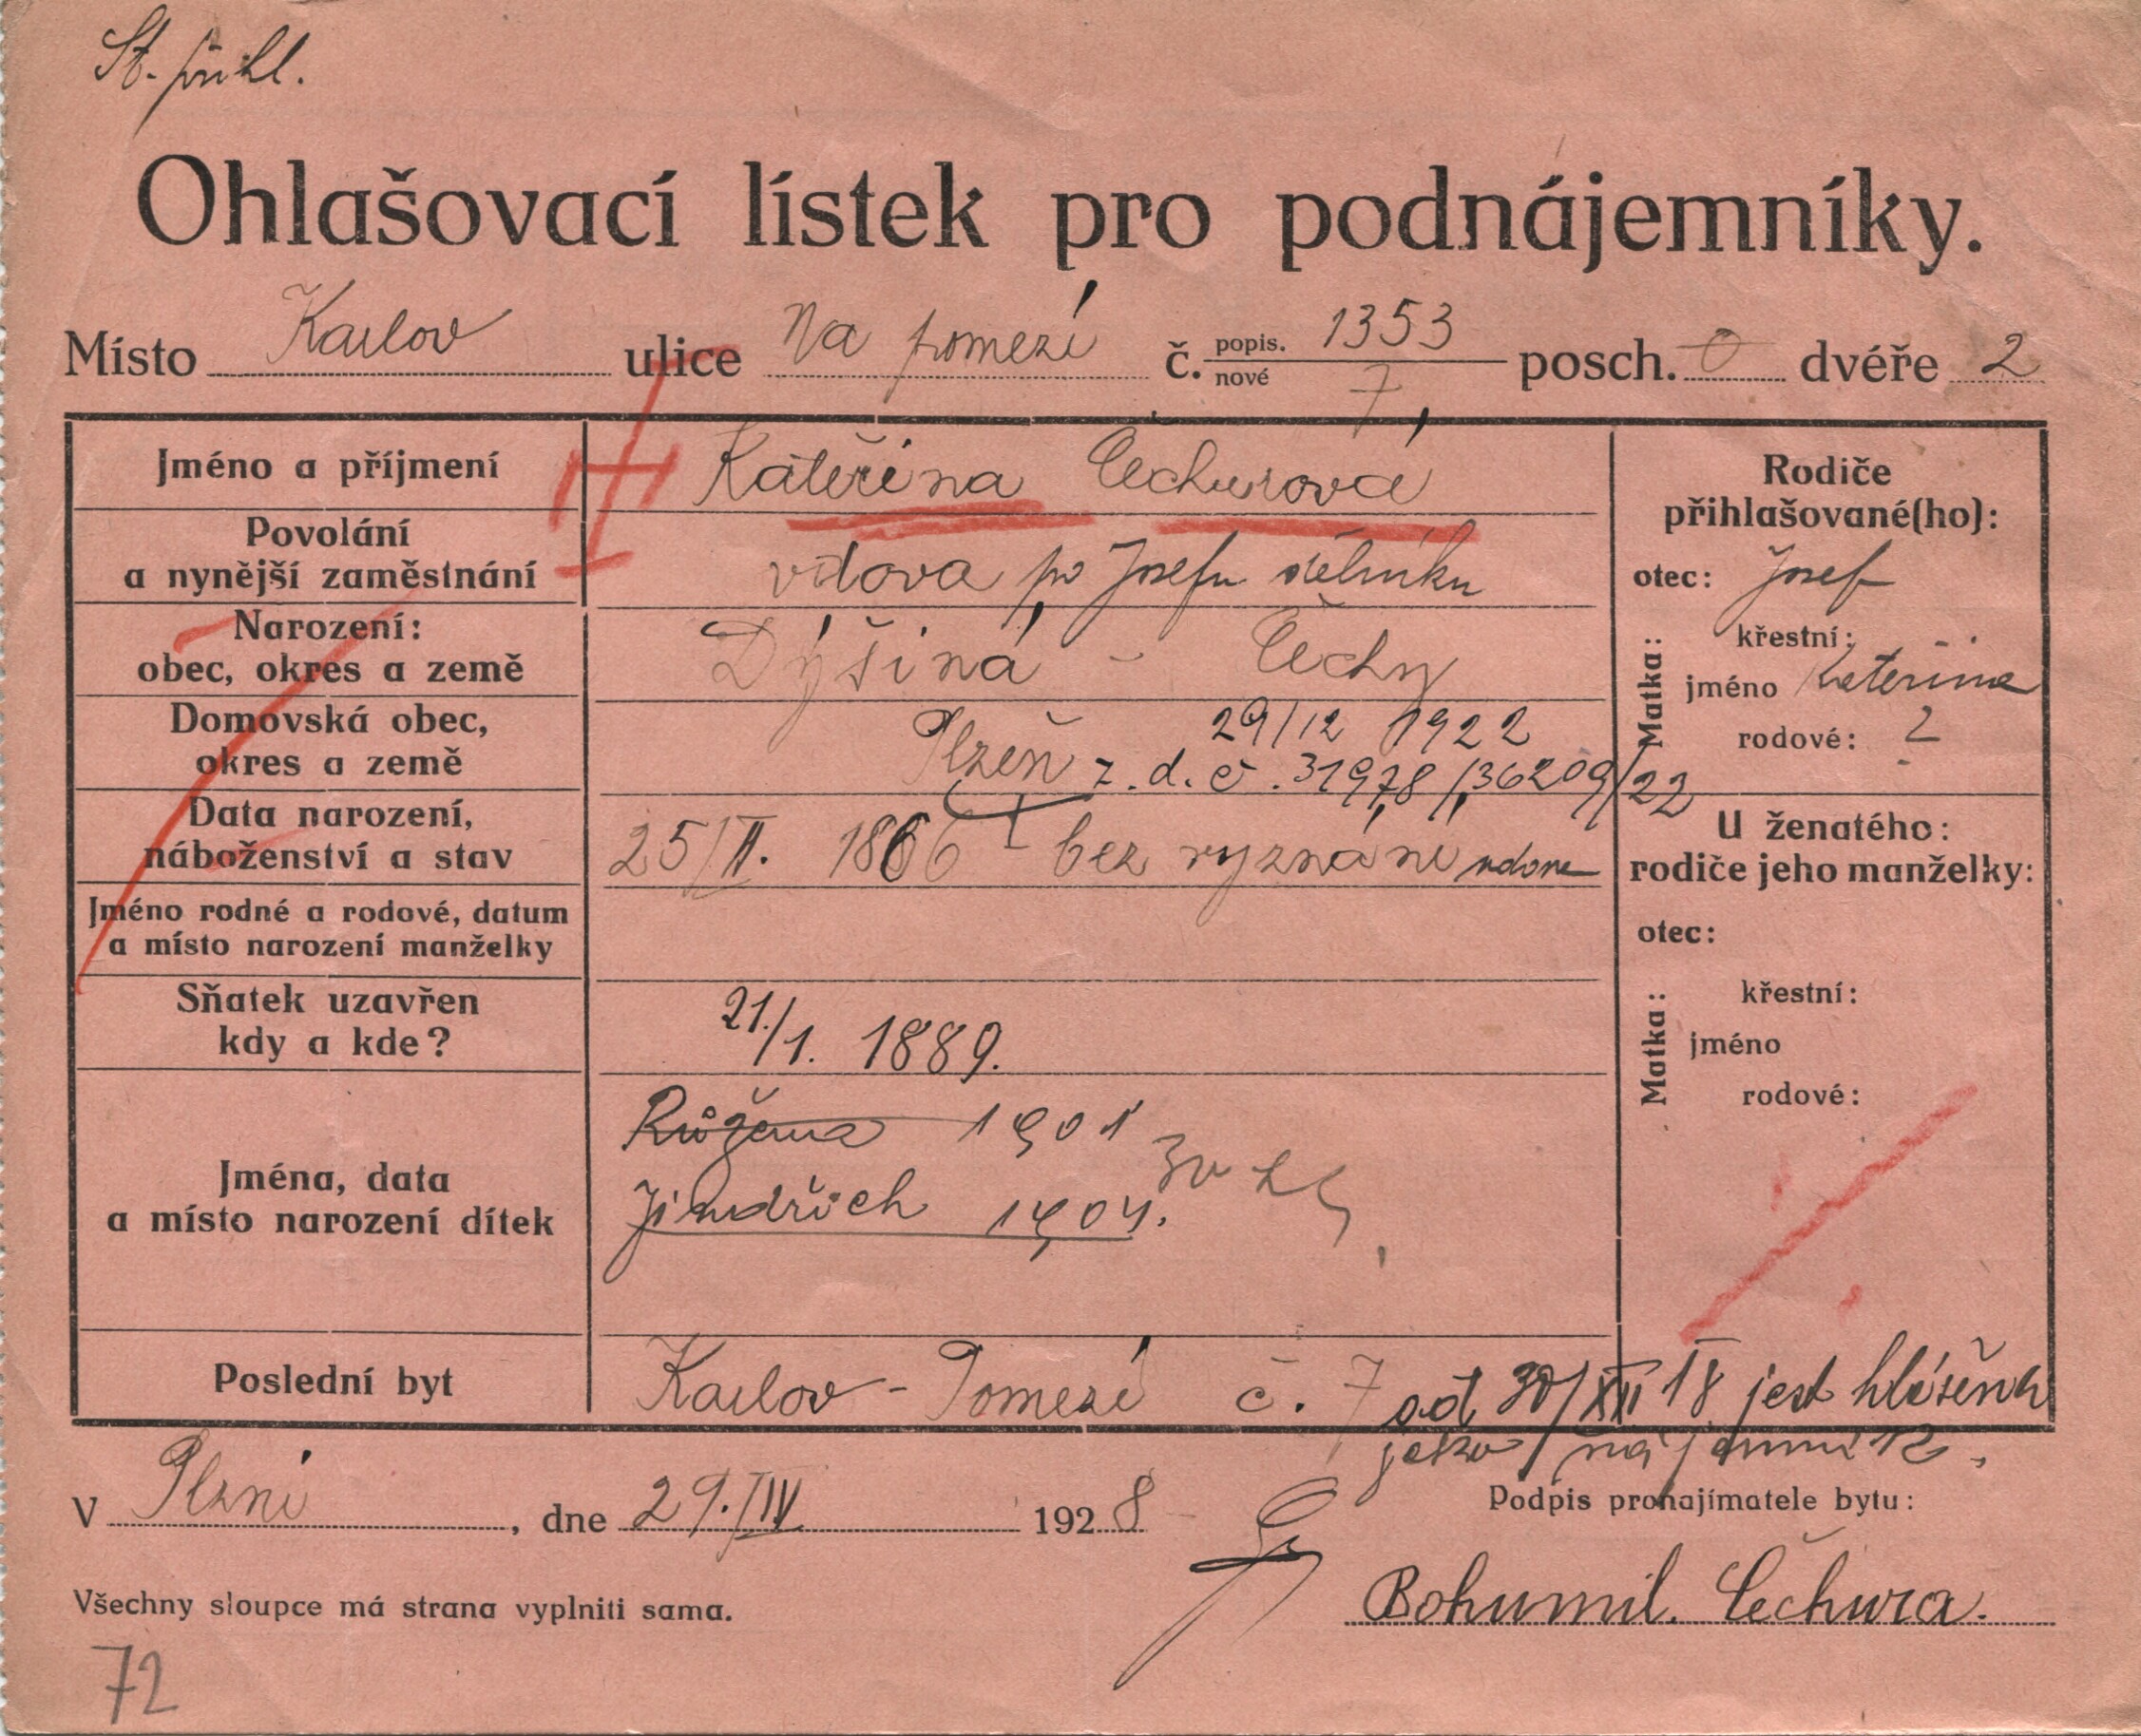 St. přihl.
Ohlašovací lístek pro podnájemníky.
Místo Karlov ulice Na pomezí č. popis. 1353 nové 7 posch. 0 dvéře 2
Jméno a příjmení Kateřina Čechurová
Povolání
a nynější zaměstnání vdova po Josefu dělníku
Narození:
obec, okres a země Dýšiná - Čechy
Domovská obec,
okres a země Plzeň 29/12 1922
z. d. č. 31978/36209/22
Data narození,
náboženství a stav 25/II. 1866 bez vyznání vdova
Jméno rodné a rodové, datum
a místo narození manželky
Sňatek uzavřen
kdy a kde? 21./1. 1889.
Jména, data
a místo narození dítek
Růžena 1901
Jindřich 1904.
Poslední byt Karlov - Pomezí č. 7 od 30/XII 18 jest hlášena
jako nájemnice.
Rodiče
přihlašované(ho):
otec: Josef
Matka:
křestní:
jméno Kateřina
rodové: ?
U ženatého:
rodiče jeho manželky:
otec:
Matka:
křestní:
jméno
rodové:
V Plzni, dne 29./IV 1928
Podpis pronajímatele bytu:
Bohumil. Čechura.
Všechny sloupce má strana vyplniti sama.
72